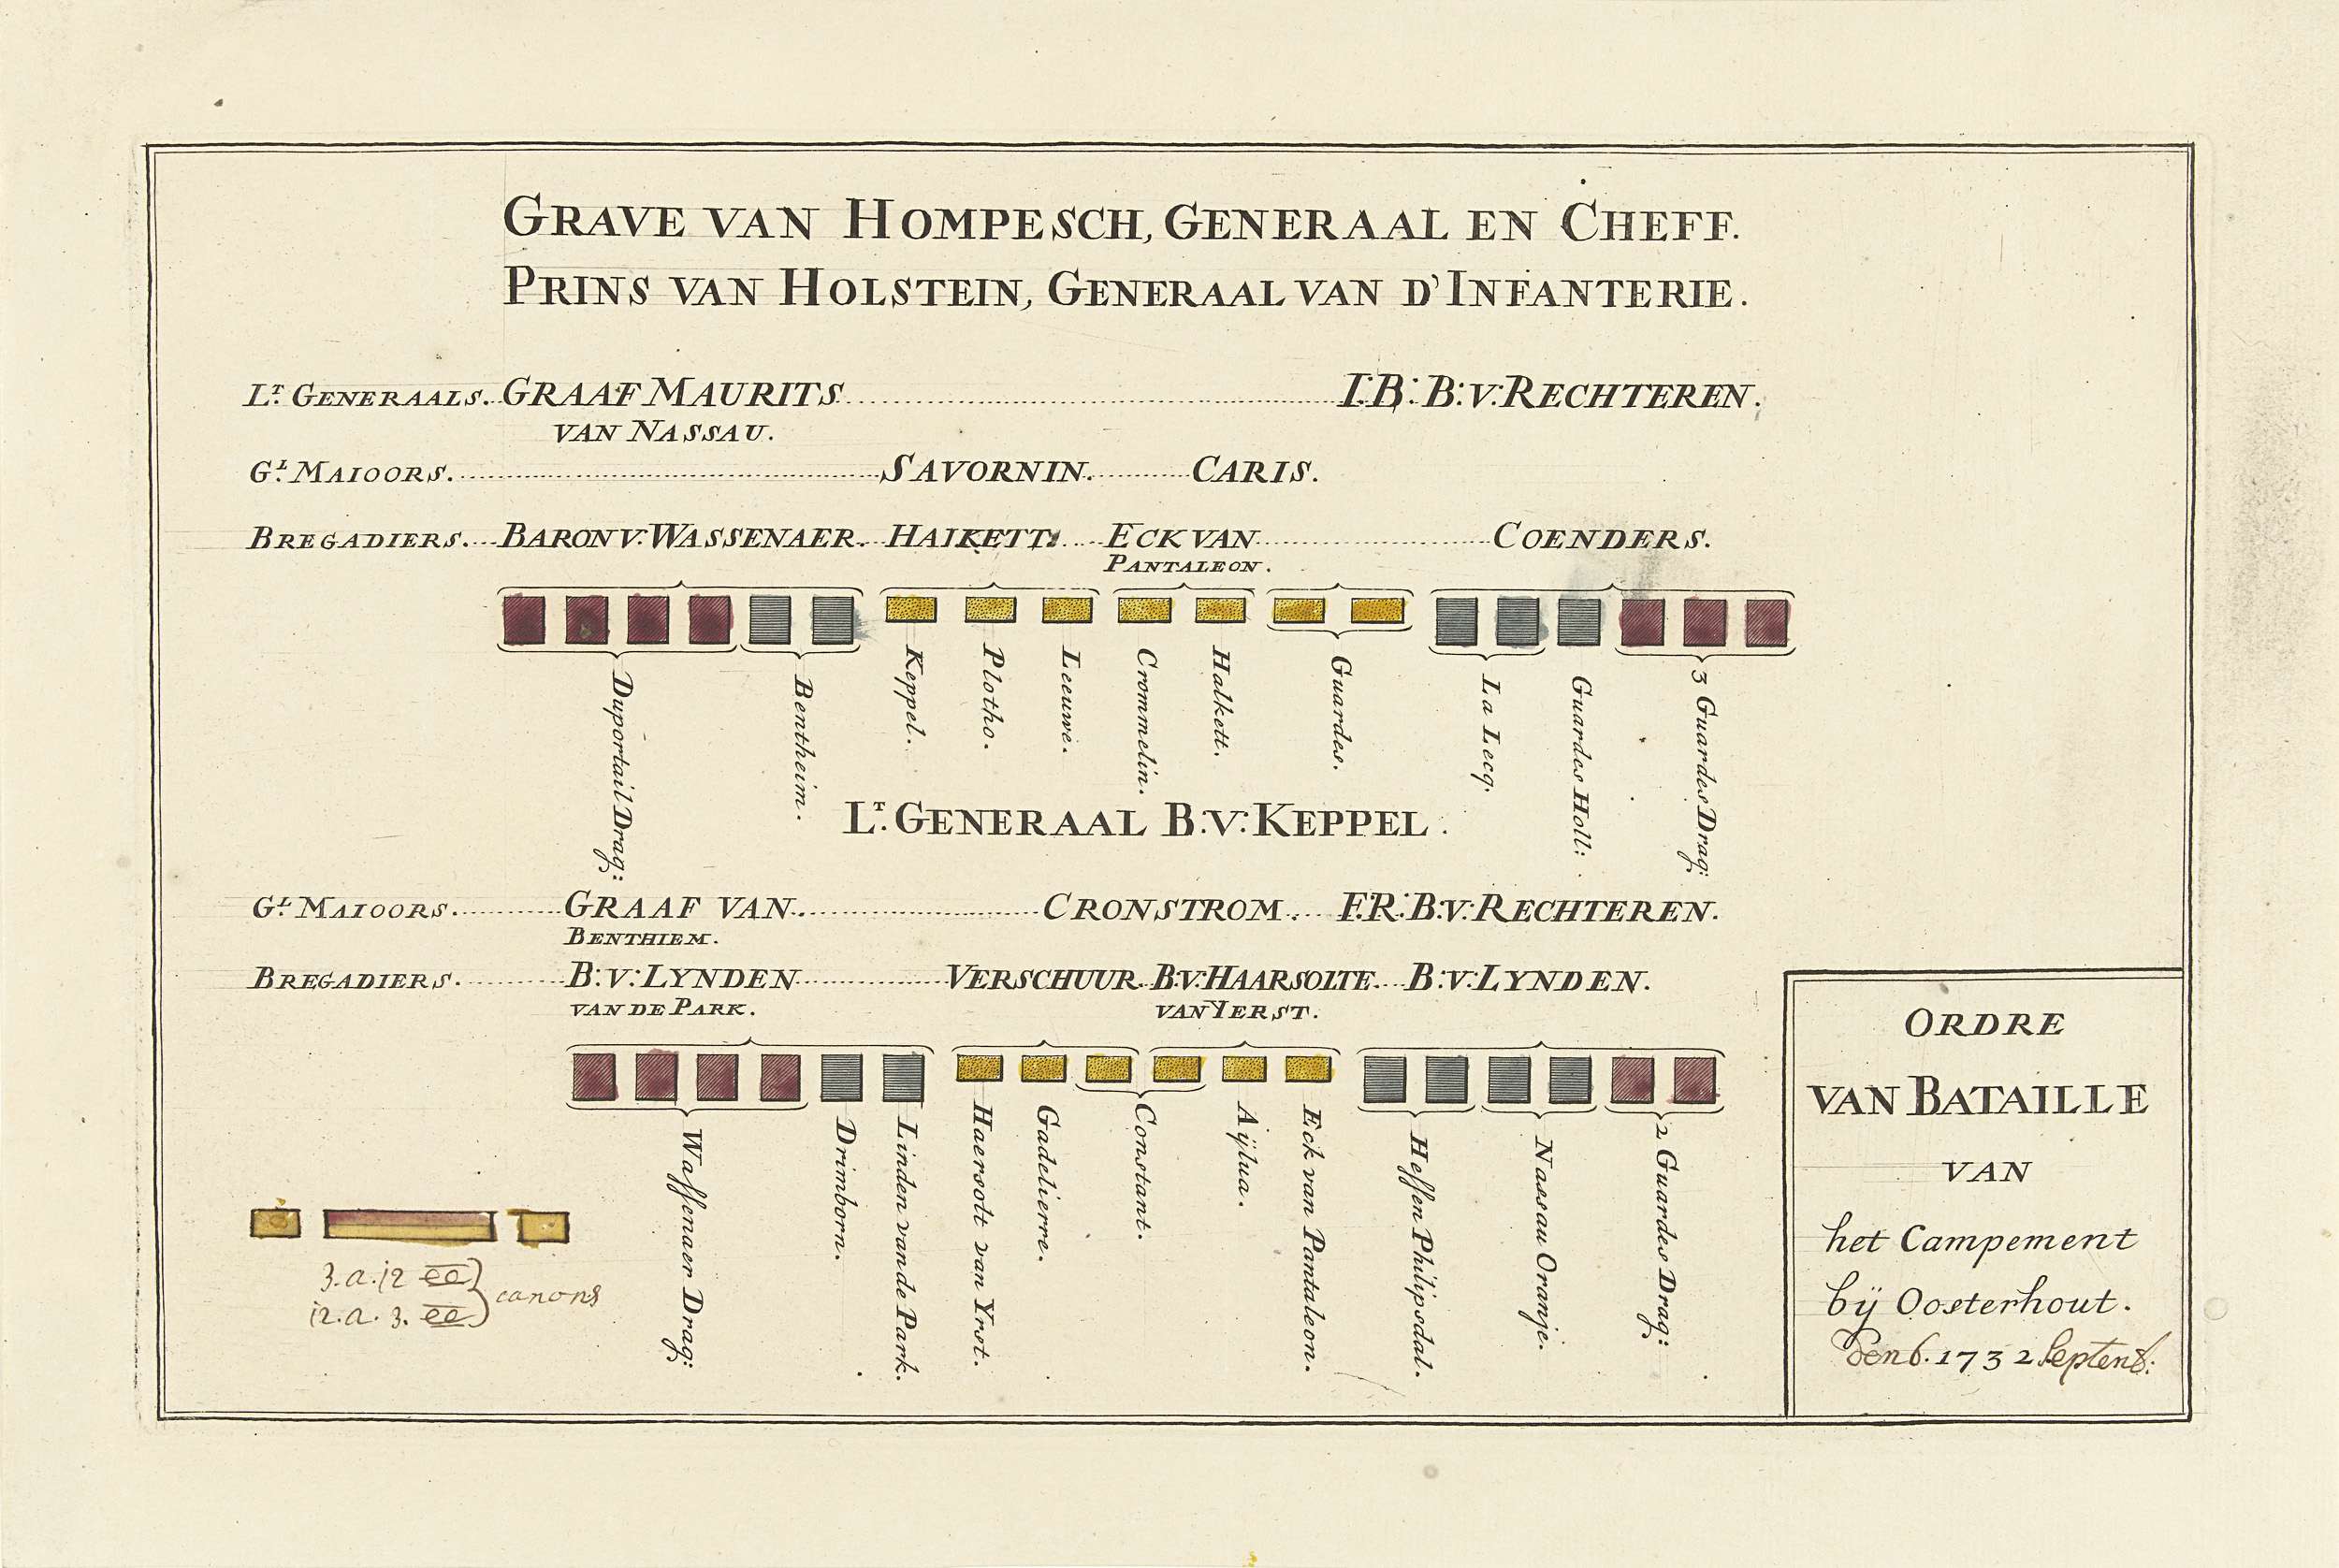 GRAVE VAN HOMPESCH, GENERAAL EN CHEFF.
PRINS VAN HOLSTEIN, GENERAAL VAN D'INFANTERIE.
LT. GENERAALS. GRAAF MAURITS I:B: B:V:RECHTEREN.
VAN NASSAU.
GL. MAIOORS. SAVORNIN. CARIS.
BREGADIERS. BARON V:WASSENAER. HAIKETT: ECK VAN COENDERS.
PANTALEON.
Duportail Drag:
Bentheim.
Keppel.
Plotho.
Leeuwe.
Crommelin.
Halkett.
Guardes.
La Lecq.
Guardes Holl:
3 Guardes Drag:
LT. GENERAAL B:V:KEPPEL.
GL. MAIOORS. GRAAF VAN CRONSTROM. F:R:B:V:RECHTEREN.
BENTHIEM.
BREGADIERS. B:V:LYNDEN VERSCHUUR. B:V:HAARSOLTE. B:V:LYNDEN.
VAN DE PARK. VAN YERST.
Wassenaer Drag:
Drimborn.
Linden vande Park.
Haersodt van Yrst.
Gadelierre.
Constant.
Aÿlua.
Eck van Pantaleon.
Hessen Philipsdal.
Nassau Oranje.
2 Guardes Drag:
3. a. 12
12. a. 3.
canons
ORDRE
VAN BATAILLE
VAN
het Campement
bÿ Oosterhout.
Den 6. 1732 Septemb: